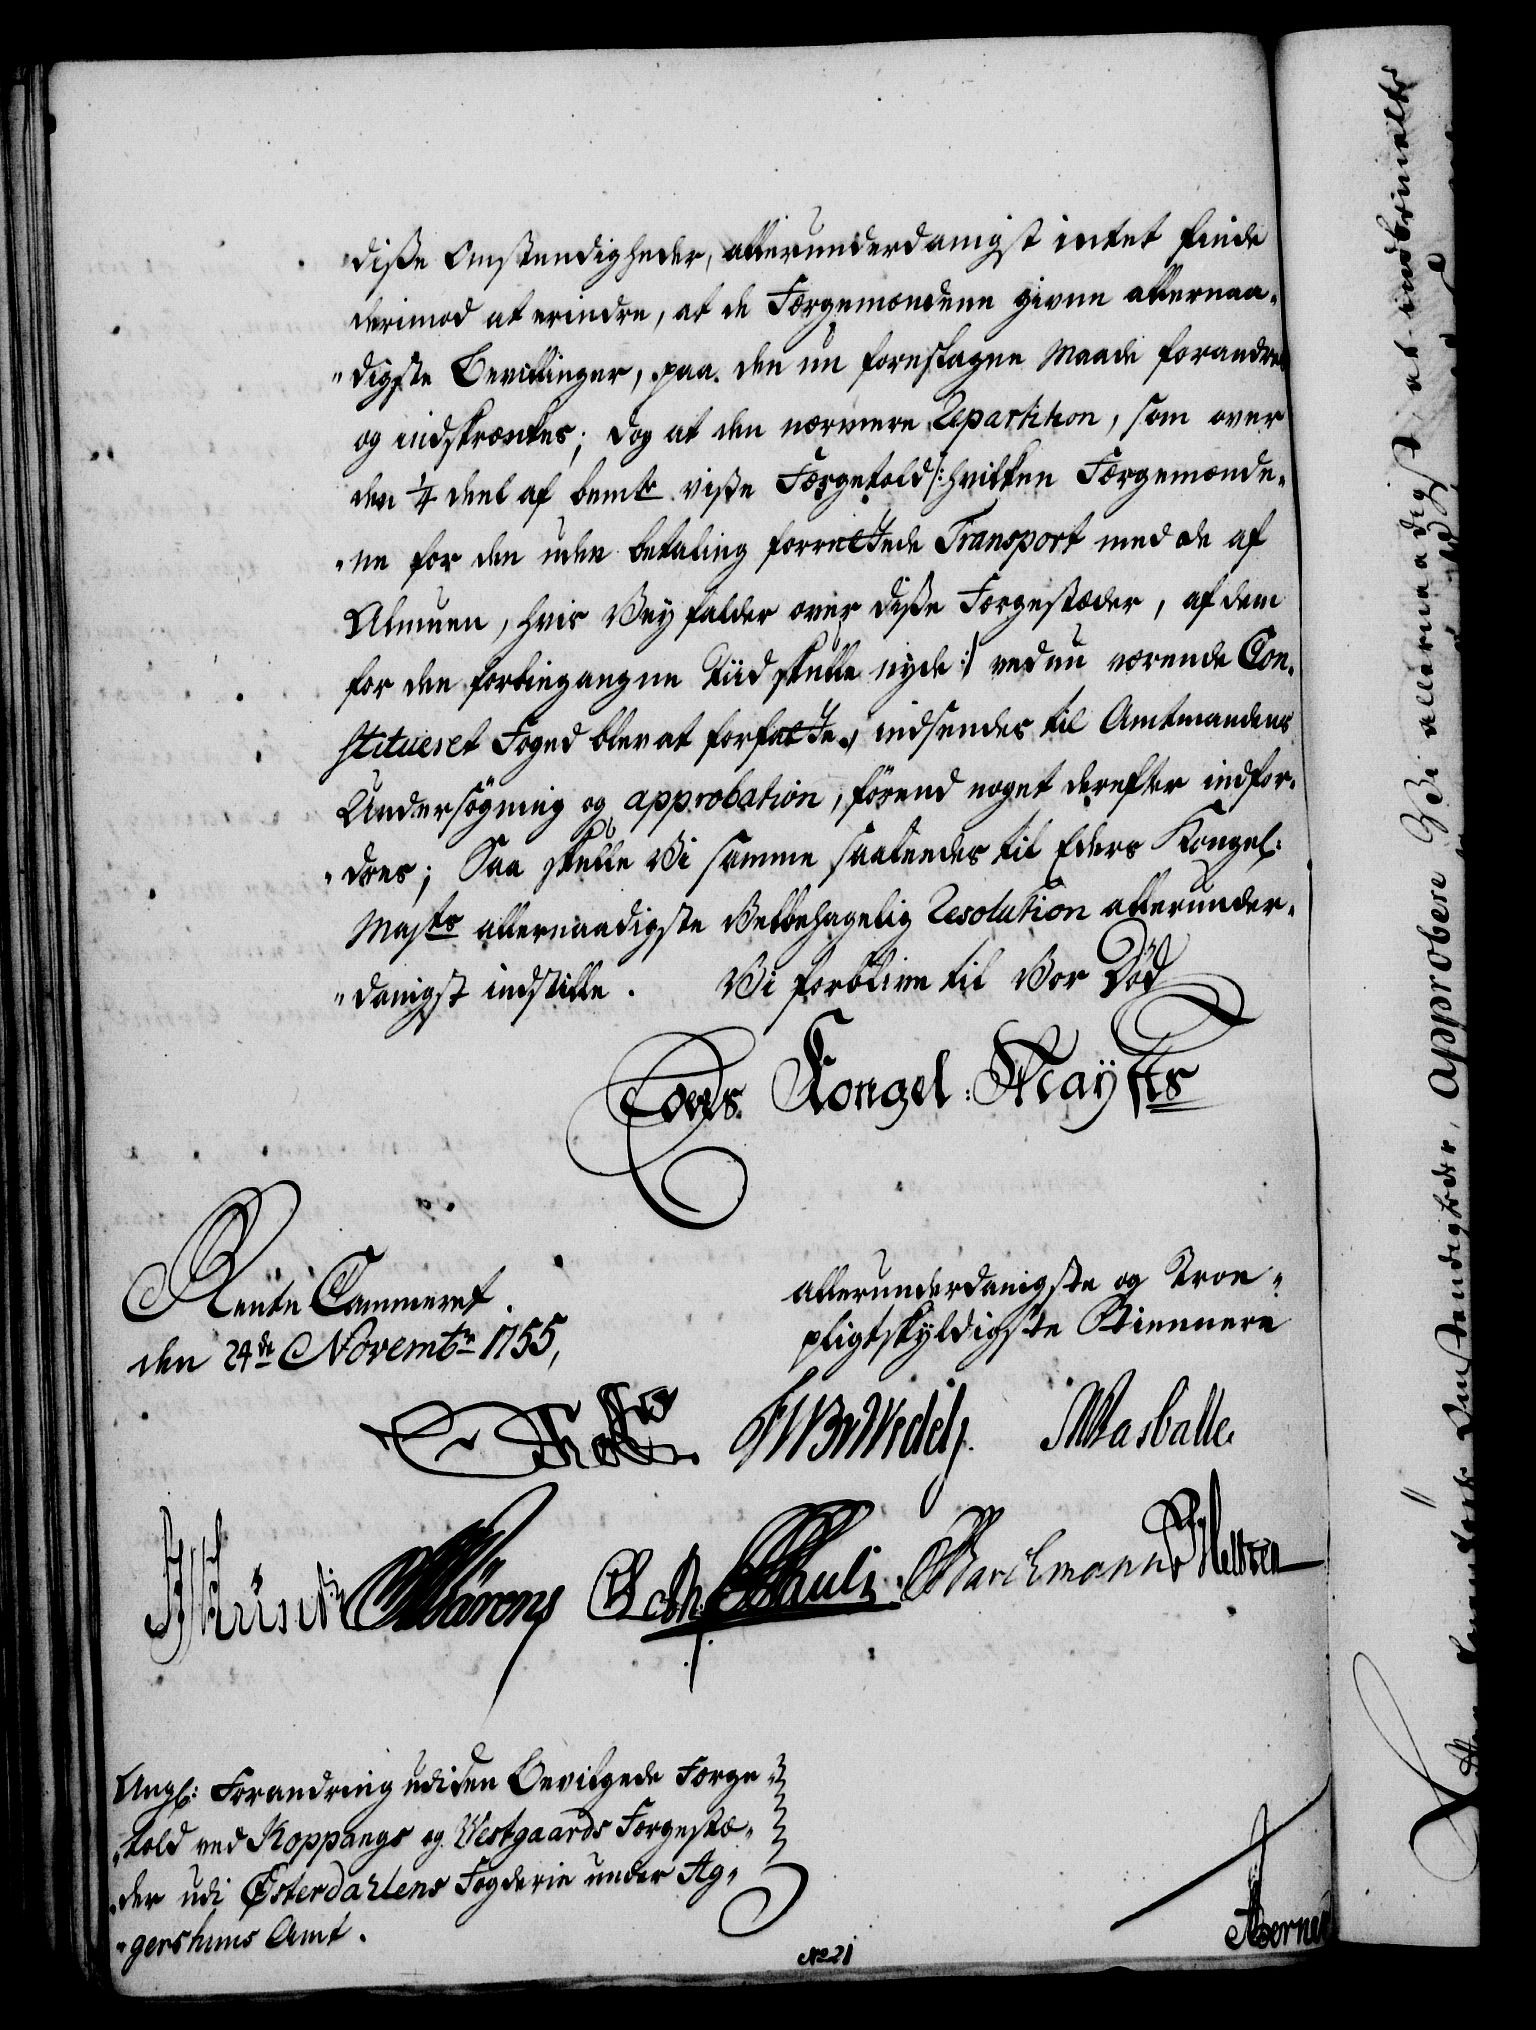 diße Omstendigheder, allerunderdanigst intet finde
derimod at erindre, at de Færgemændene givne allernaa-
"digste Bevillinger, paa den nu foreslagne Maade forandres
og indskrænkes; dog at den nærmere Repartition, som over
den 1/4 deel af bemte viße Færgetold /: hvilken Færgemænde-
"ne for den uden betaling forrettede Transport med de af
Almuen, hvis Vey falder over diße Færgestæder, af dem
for den forbiegangne Tiid skulle nyde :/ ved nu værende Con-
stitueret Foged blev at forfatte, indsendes til Amtmandens
Undersøgning og approbation, førend noget derefter indfor-
"dres; Saa skulle Vi samme saaledes til Eders Kongel:
Majts allernaadigste Velbehagelig Resolution allerunder-
"danigst indstille. Vi forblive til Vor Død
Eders Kongel: Mayts
Rente Cammeret.
den 24de Novembr 1755,
allerunderdanigste og Troe-
pligtskyldigste Tiennere
Holck FWBvWedelj. Wasballe.
Pauli Barchmann
Angl: Forandring udi den Bevilgede Færge
"told ved Koppangs og Westgaards Færgestæ-
"der udi Østerdahlens Fogderie under Ag-
"gershuus Amt.
No 21
Approbere Vi allernaadigst, at indbemelte
Omstendigheder,